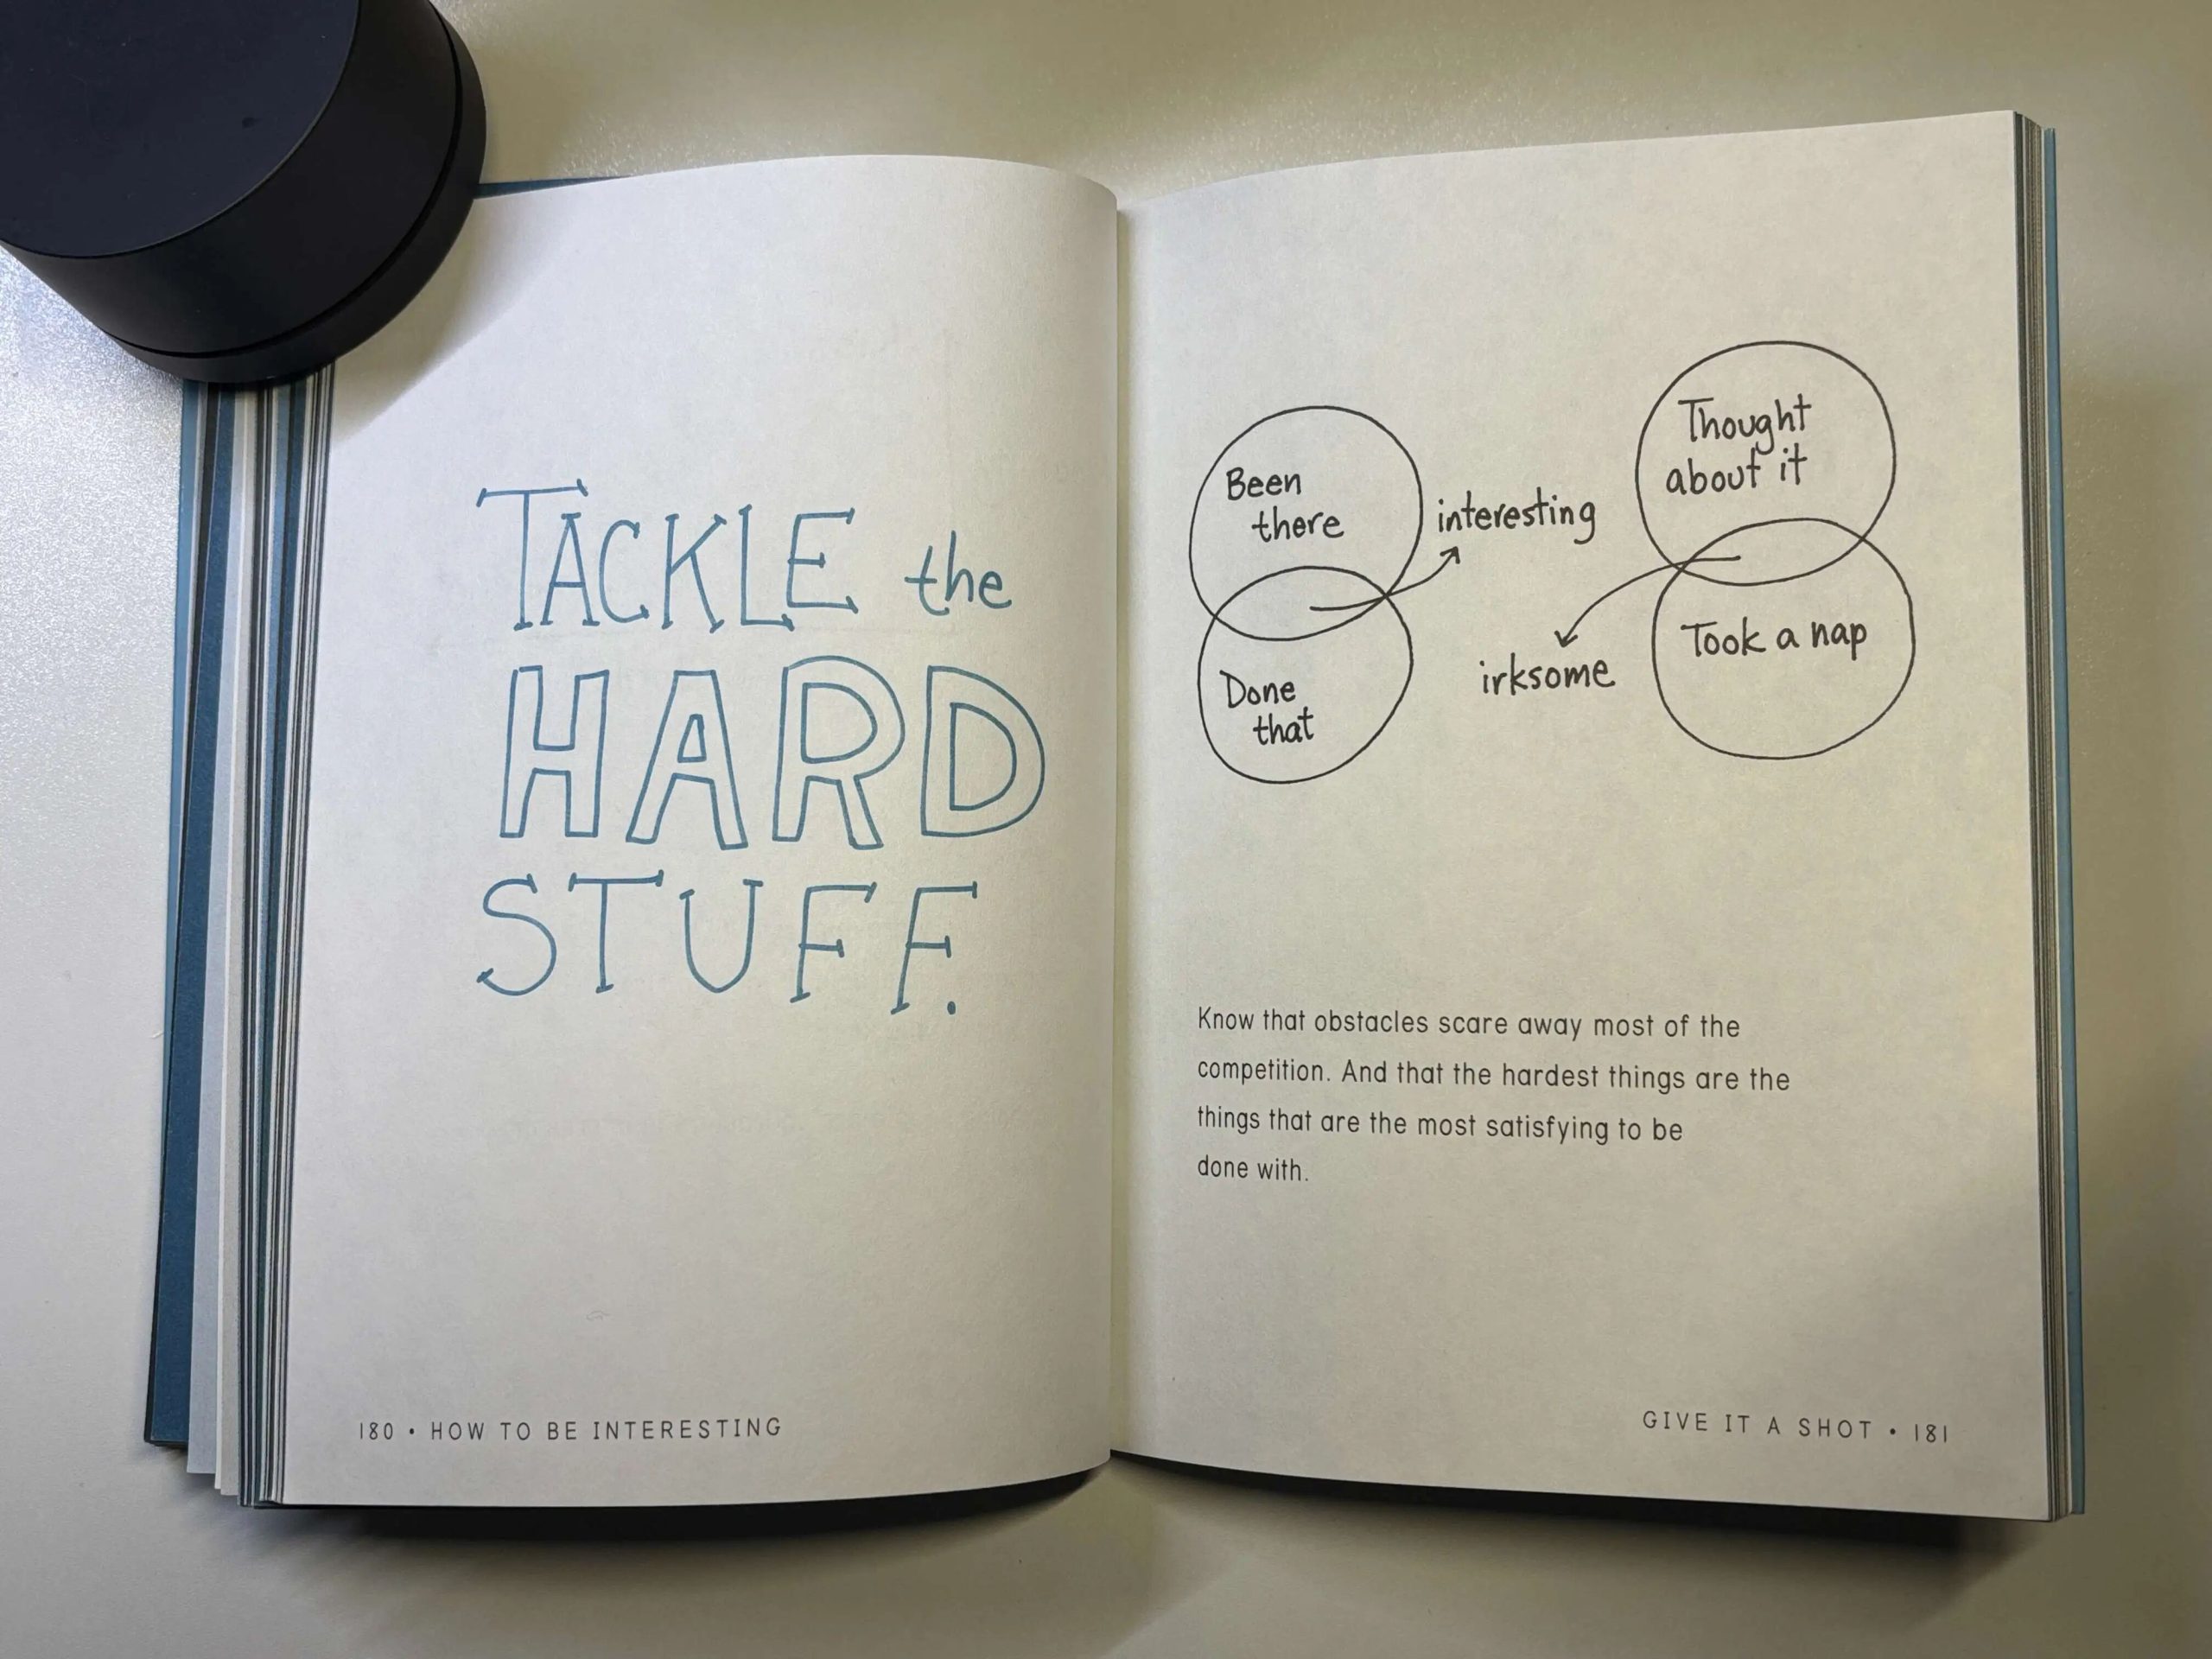 TACKLE the
HARD
STUFF.
180 • HOW TO BE INTERESTING
Been
there
Done
that
interesting
Thought
about it
Took a nap
irksome
Know that obstacles scare away most of the
competition. And that the hardest things are the
things that are the most satisfying to be
done with.
GIVE IT A SHOT • 181